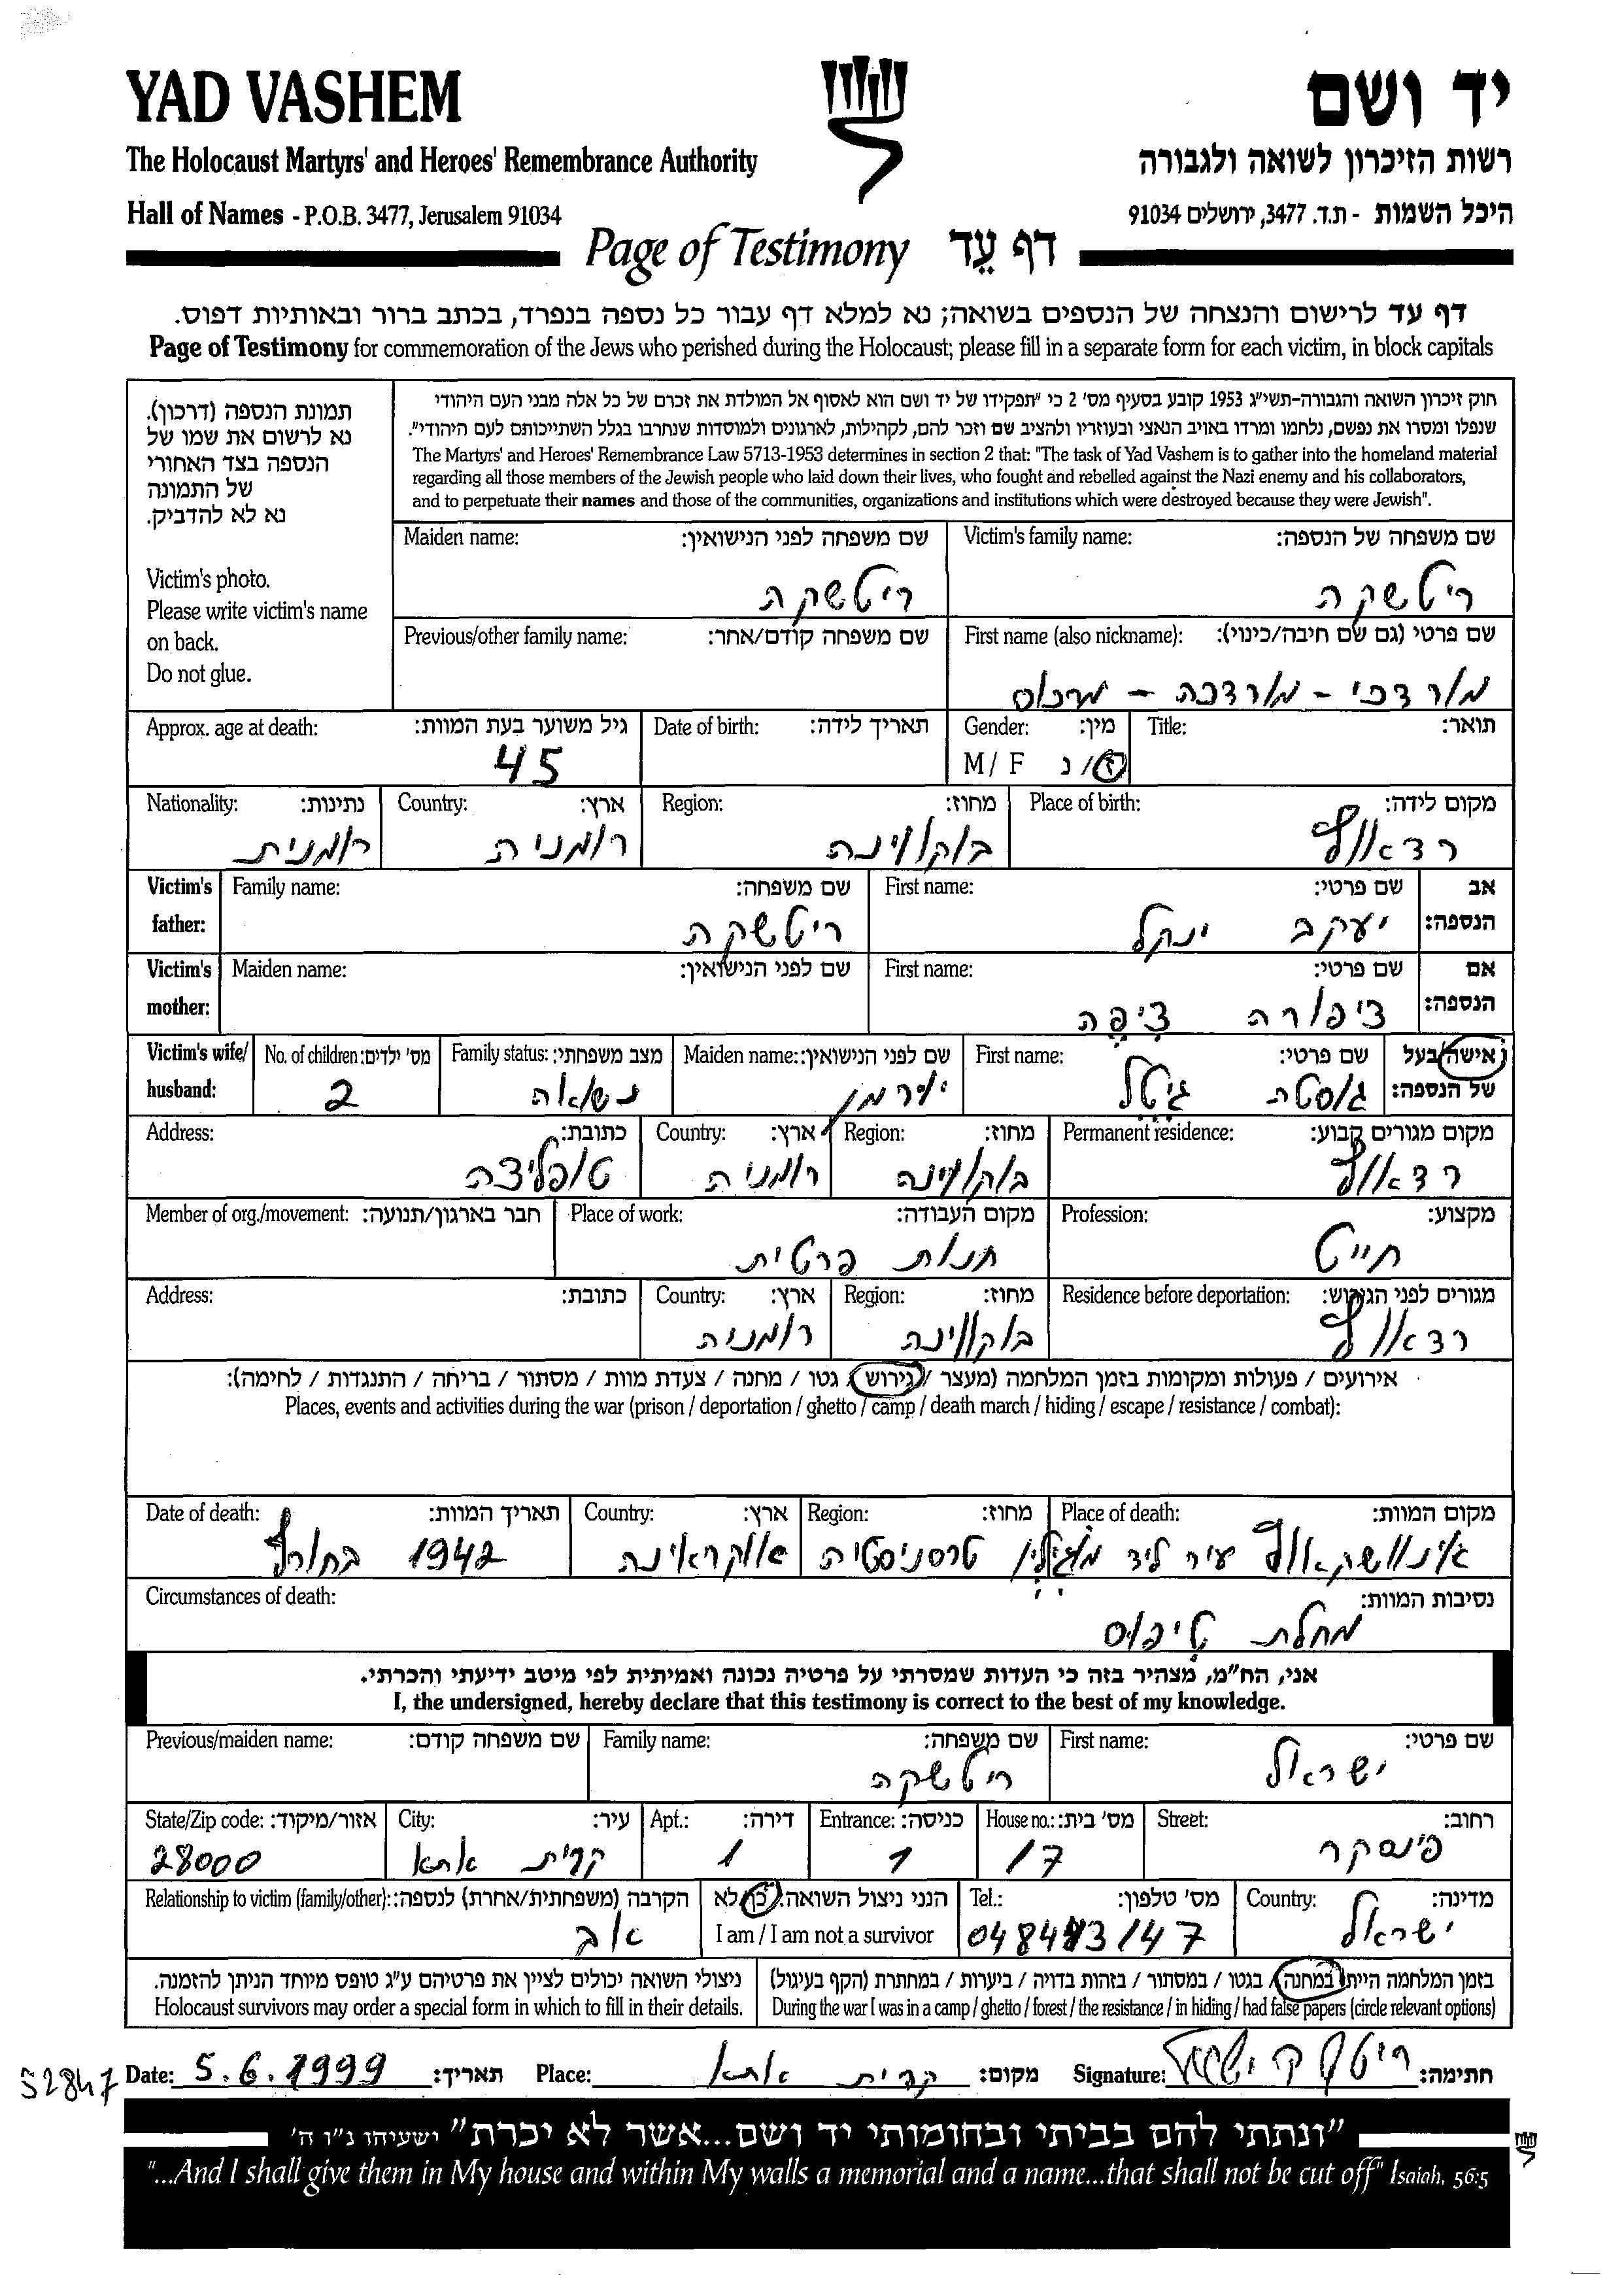 YAD VASHEM
יד ושם
The Holocaust Martyrs' and Heroes' Remembrance Authority
רשות הזיכרון לשואה ולגבורה
Hall of Names - P.O.B. 3477, Jerusalem 91034
היכל השמות - ת.ד. 3477, ירושלים 91034
Page of Testimony דף עֵד
דף עד לרישום והנצחה של הנספים בשואה; נא למלא דף עבור כל נספה בנפרד, בכתב ברור ובאותיות דפוס.
Page of Testimony for commemoration of the Jews who perished during the Holocaust; please fill in a separate form for each victim, in block capitals
תמונת הנספה (דרכון).
נא לרשום את שמו של
הנספה בצד האחורי
של התמונה
נא לא להדביק.
Victim's photo.
Please write victim's name
on back.
Do not glue.
חוק זיכרון השואה והגבורה-תשי"ג 1953 קובע בסעיף מס' 2 כי "תפקידו של יד ושם הוא לאסוף אל המולדת את זכרם של כל אלה מבני העם היהודי
שנפלו ומסרו את נפשם, נלחמו ומרדו באויב הנאצי ובעוזריו ולהציב שם וזכר להם, לקהילות, לארגונים ולמוסדות שנחרבו בגלל השתייכותם לעם היהודי".
The Martyrs' and Heroes' Remembrance Law 5713-1953 determines in section 2 that: "The task of Yad Vashem is to gather into the homeland material
regarding all those members of the Jewish people who laid down their lives, who fought and rebelled against the Nazi enemy and his collaborators,
and to perpetuate their names and those of the communities, organizations and institutions which were destroyed because they were Jewish".
Victim's family name: שם משפחה של הנספה:
ריטשקה
Maiden name: שם משפחה לפני הנישואין:
ריטשקה
First name (also nickname): שם פרטי (גם שם חיבה/כינוי):
מורדכי - מורדכה - מרכוס
Previous/other family name: שם משפחה קודם/אחר:
Title: תואר:
Gender: מין:
M / F ז / נ
Date of birth: תאריך לידה:
Approx. age at death: גיל משוער בעת המוות:
45
Place of birth: מקום לידה:
רדאוץ
Region: מחוז:
בוקווינה
Country: ארץ:
רומנית
Nationality: נתינות:
רומנית
Victim's father: אב הנספה:
First name: שם פרטי:
יעקב ינקל
Family name: שם משפחה:
ריטשקה
Victim's mother: אם הנספה:
First name: שם פרטי:
ציפורה ציפה
Maiden name: שם לפני הנישואין:
Victim's wife/ husband: אישה/בעל של הנספה:
First name: שם פרטי:
גוסטה גיטל
Maiden name: שם לפני הנישואין:
Family status: מצב משפחתי:
נשואה
No. of children: מס' ילדים:
2
Permanent residence: מקום מגורים קבוע:
רדאוץ
Region: מחוז:
בוקווינה
Country: ארץ:
רומנית
Address: כתובת:
טופליצה
Profession: מקצוע:
חייט
Place of work: מקום העבודה:
חנות פרטית
Member of org./movement: חבר בארגון/תנועה:
Residence before deportation: מגורים לפני הגירוש:
רדאוץ
Region: מחוז:
בוקווינה
Country: ארץ:
רומנית
Address: כתובת:
אירועים / פעולות ומקומות בזמן המלחמה (מעצר / גירוש / גטו / מחנה / צעדת מוות / מסתור / בריחה / התנגדות / לחימה):
Places, events and activities during the war (prison / deportation / ghetto / camp / death march / hiding / escape / resistance / combat):
Place of death: מקום המוות:
עיר ליד מוגילין
Region: מחוז:
טרסניסטיה
Country: ארץ:
אוקראינה
Date of death: תאריך המוות:
1942 בחורף
Circumstances of death: נסיבות המוות:
מחלת טיפוס
אני, הח"מ, מצהיר בזה כי העדות שמסרתי על פרטיה נכונה ואמיתית לפי מיטב ידיעתי והכרתי.
I, the undersigned, hereby declare that this testimony is correct to the best of my knowledge.
First name: שם פרטי:
ישראל
Family name: שם משפחה:
ריטשקה
Previous/maiden name: שם משפחה קודם:
Street: רחוב:
פינסקר
House no.: מס' בית:
17
Entrance: כניסה:
1
Apt.: דירה:
1
City: עיר:
קרית אתא
State/Zip code: אזור/מיקוד:
28000
Country: מדינה:
ישראל
Tel.: מס' טלפון:
הנני ניצול השואה: כן / לא
I am / I am not a survivor
Relationship to victim (family/other): הקרבה (משפחתית/אחרת) לנספה:
אב
בזמן המלחמה הייתי במחנה / בגטו / במסתור / בזהות בדויה / ביערות / במחתרת (הקף בעיגול)
During the war I was in a camp / ghetto / forest / the resistance / in hiding / had false papers (circle relevant options)
ניצולי השואה יכולים לציין את פרטיהם ע"ג טופס מיוחד הניתן להזמנה.
Holocaust survivors may order a special form in which to fill in their details.
52847
Date: 5.6.1999 תאריך: Place: קרית אתא מקום: Signature: ריטשקה ישראל חתימה:
"ונתתי להם בביתי ובחומותי יד ושם...אשר לא יכרת" ישעיהו נ"ו ה'
"...And I shall give them in My house and within My walls a memorial and a name...that shall not be cut off" Isaiah, 56:5